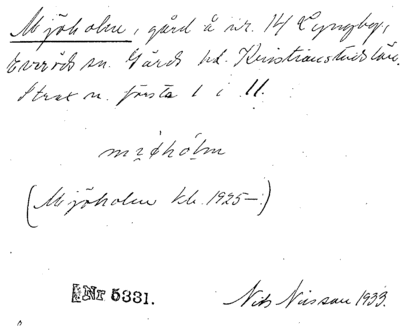 Mjöholm, gård å nr. 14 Lyngby,
Everöds sn. Gärds hd. Kristianstads län.
Strax n. första l i ll.
(Mjöholm kb. 1925–.)
Nr 5331.
Nils Nilsson 1933.